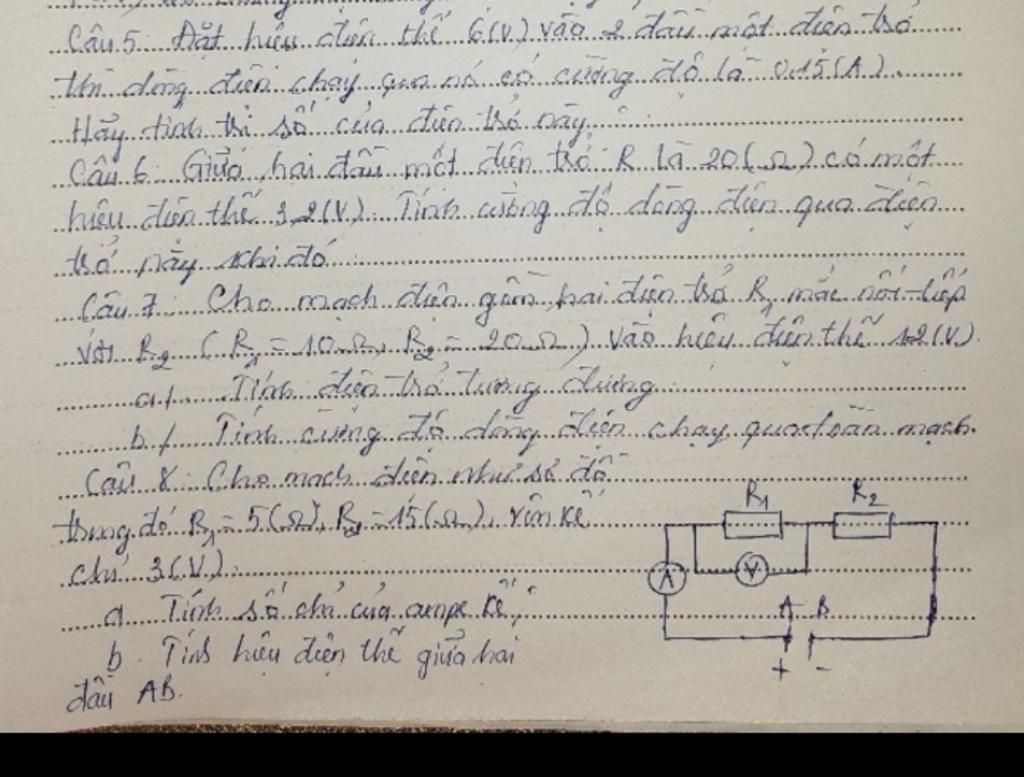 Câu 5: Đặt hiệu điện thế 6(V) vào 2 đầu một điện trở
thì dòng điện chạy qua nó có cường độ là 0,15(A).
Hãy tính trị số của điện trở này.
Câu 6: Giữa hai đầu một điện trở R là 20(Ω) có một
hiệu điện thế 3,2(V). Tính cường độ dòng điện qua điện
trở này khi đó
Câu 7: Cho mạch điện gồm hai điện trở R1 mắc nối tiếp
với R2 (R1 = 10Ω, R2 = 20Ω) vào hiệu điện thế 12(V)
a/. Tính điện trở tương đương
b/. Tính cường độ dòng điện chạy qua đoàn mạch.
Câu 8: Cho mạch điện như sơ đồ
trong đó R1 = 5(Ω), R2 = 15(Ω), vôn kế
chỉ 3(V).
a. Tính số chỉ của ampe kế;
b. Tính hiệu điện thế giữa hai
đầu AB.
R1 R2
A V
A B
+ -